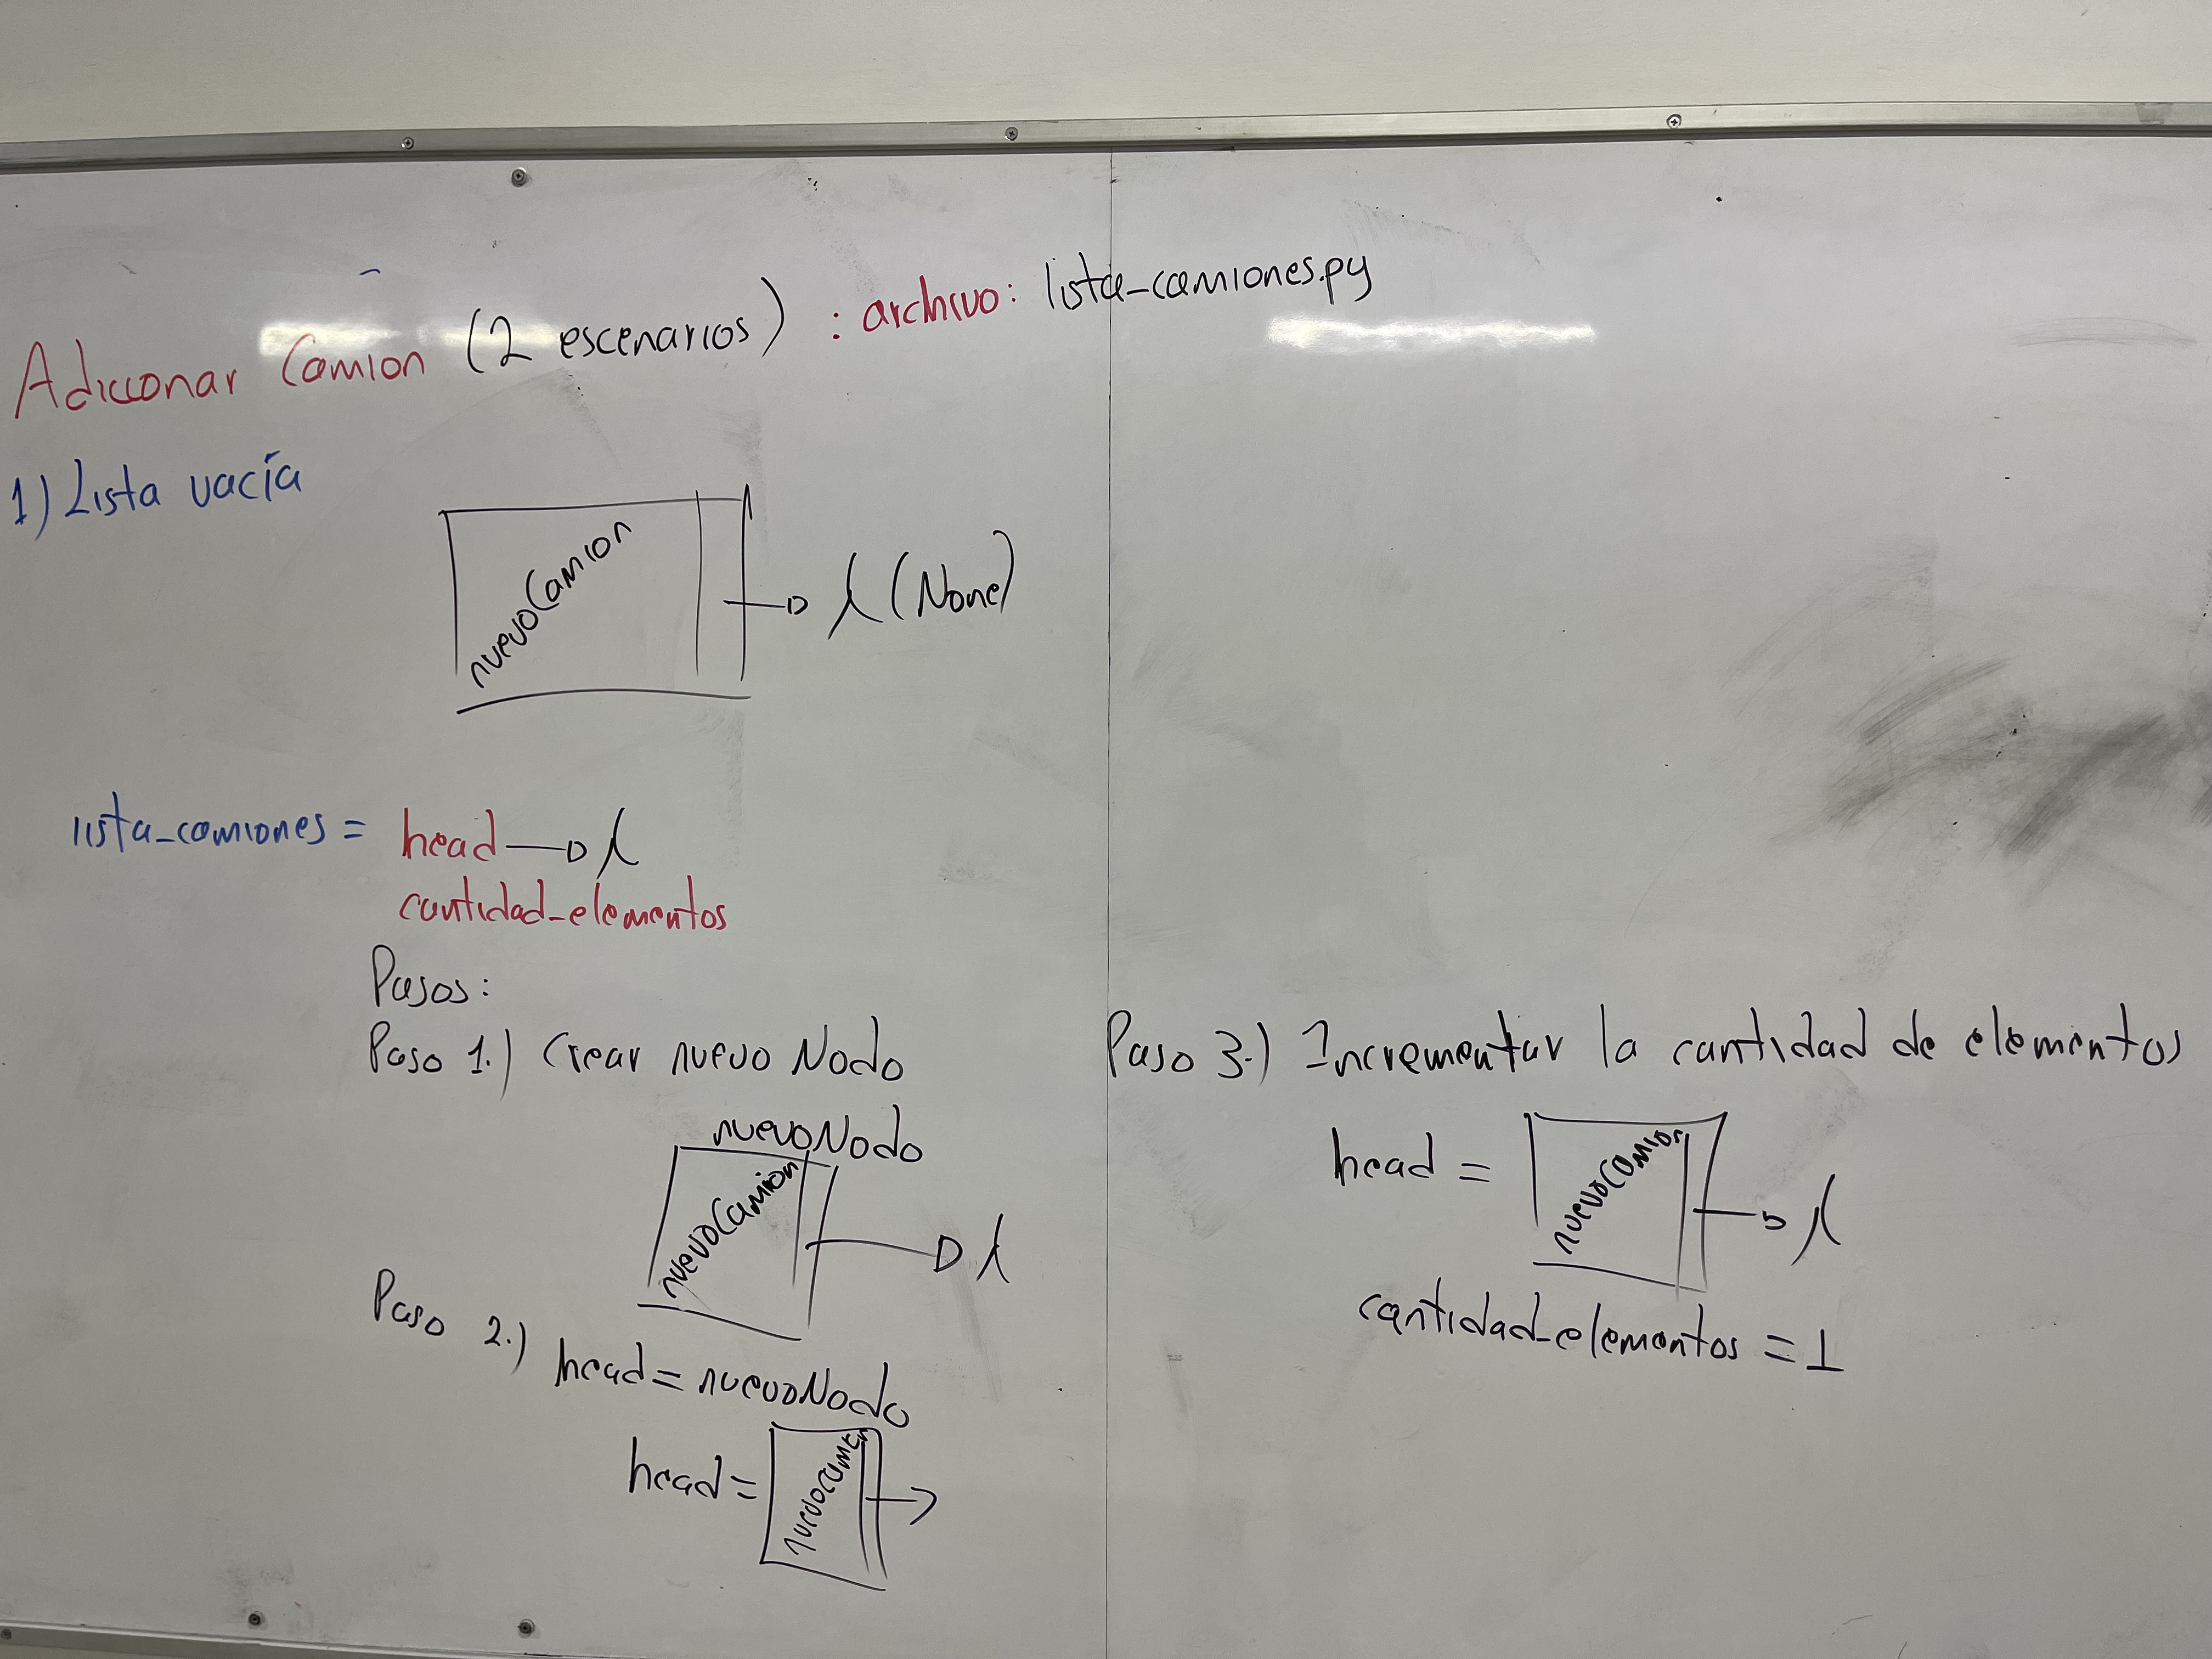 Adicionar Camion (2 escenarios) : archivo: lista_camiones.py
1) Lista vacía
nuevoCamion
λ (None)
lista_camiones = head λ
cantidad_elementos
Pasos:
Paso 1.) Crear nuevo Nodo
nuevoNodo
nuevoCamion
λ
Paso 2.) head = nuevoNodo
head =
nuevoCamion
Paso 3.) Incrementar la cantidad de elementos
head =
nuevoCamion
λ
cantidad_elementos = 1